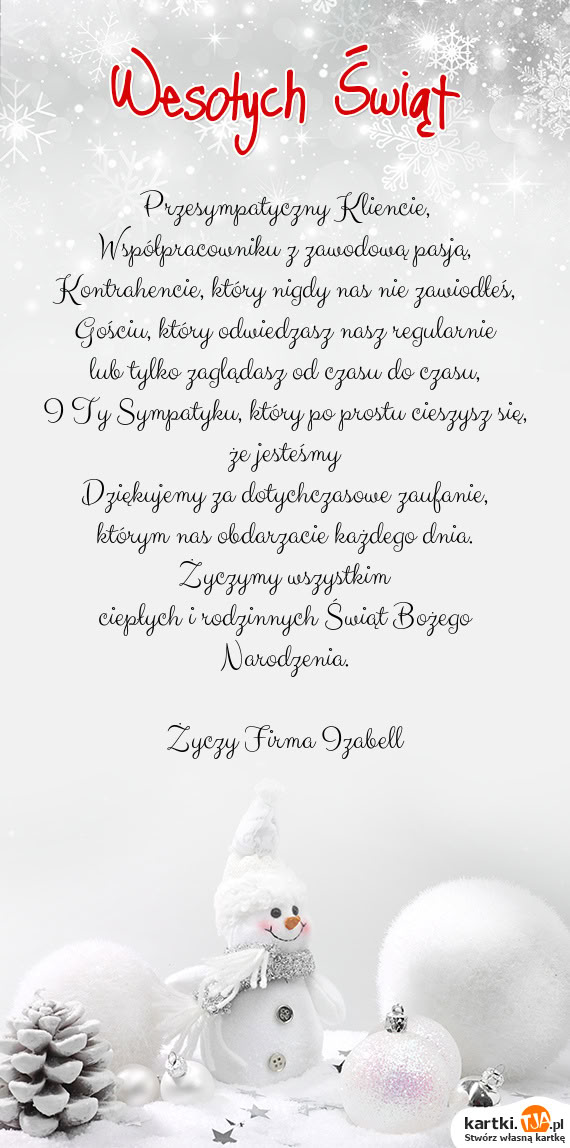 Wesołych Świąt
Przesympatyczny Kliencie,
Współpracowniku z zawodową pasją,
Kontrahencie, który nigdy nas nie zawiodłeś,
Gościu, który odwiedzasz nasz regularnie
lub tylko zaglądasz od czasu do czasu,
I Ty Sympatyku, który po prostu cieszysz się,
że jesteśmy
Dziękujemy za dotychczasowe zaufanie,
którym nas obdarzacie każdego dnia.
Życzymy wszystkim
ciepłych i rodzinnych Świąt Bożego
Narodzenia.
Życzy Firma Izabell
kartki.TJA.pl
Stwórz własną kartkę